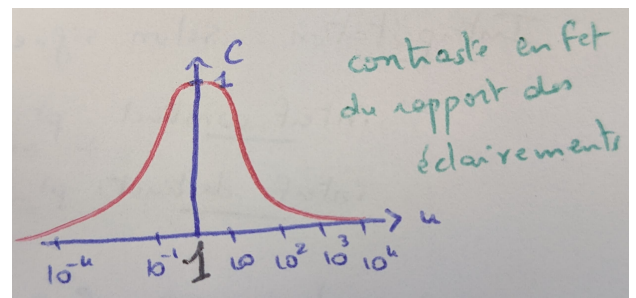 C
1
contraste en fct
du rapport des
éclairements
u
10⁻⁴ 10⁻¹ 1 10 10² 10³ 10⁴